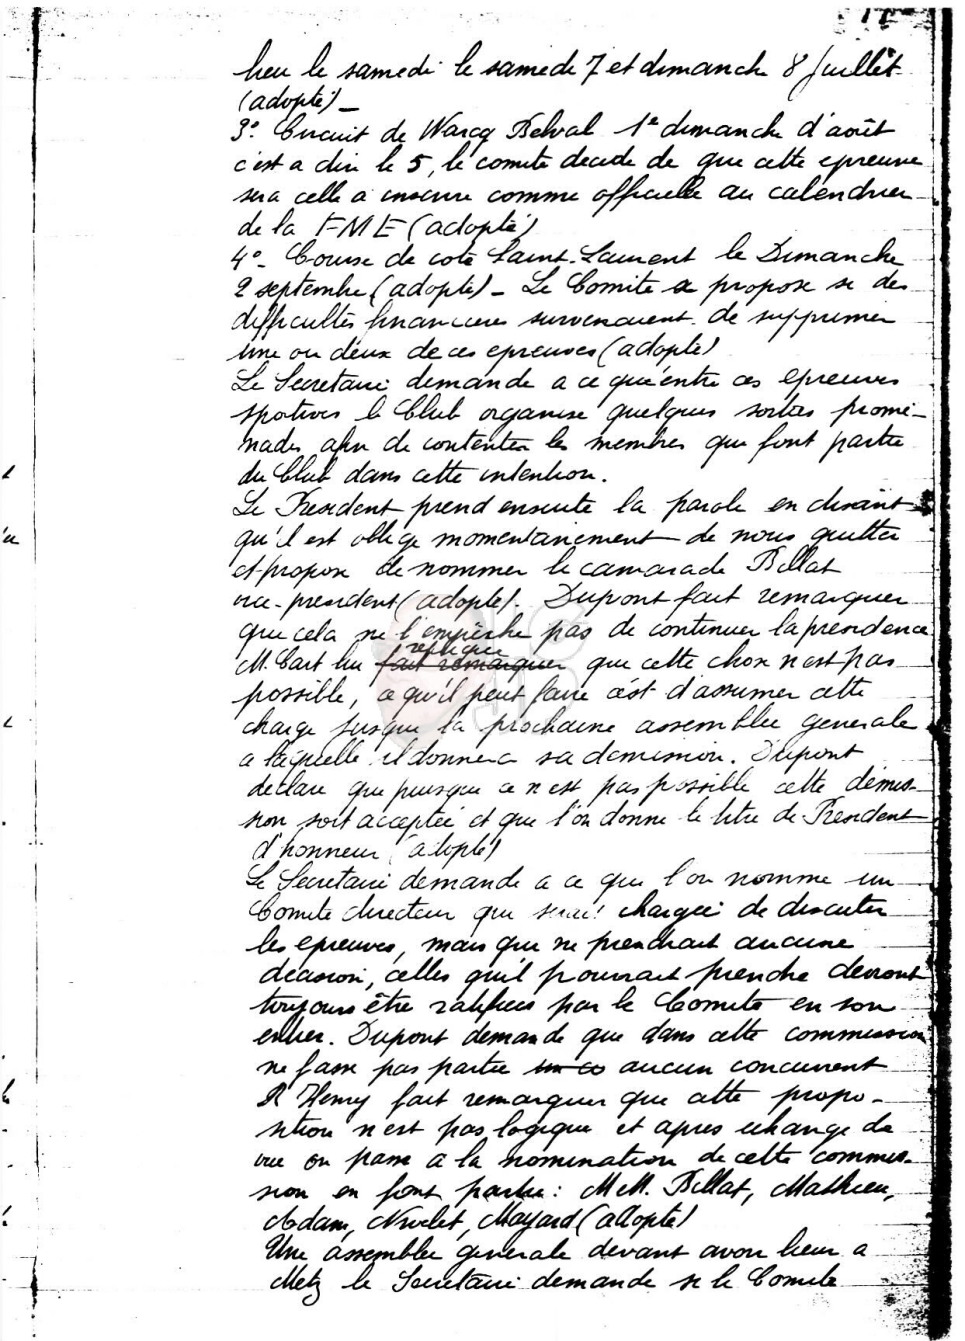 lieu le samedi le samede 7 et dimanche 8 Juillet
(adopté) -
3° Circuit de Warcq Belval 1e dimanche d'août
c'est a dire le 5, le comite decide de que cette epreuve
sera celle a inscrire comme officielle au calendrier
de la FME (adopté)
4°- Course de cote Saint-Laurent le Dimanche
2 septembre (adopté) - Le Comite se propose si des
difficultés financieres survenaient de supprimer
une ou deux de ces epreuves (adopté)
Le Secretaire demande a ce qu'entre ces epreuves
spotives le Club organise quelques sorties prome-
nades afin de contenter les membres qui font partie
du Club dans cette intention.
Le President prend ensuite la parole en disant
qu'il est oblige momentanement de nous quitter
et propose de nommer le camarade Billat
vice-president (adopté). Dupont fait remarquer
que cela ne l'empêche pas de continuer la presidence
replique
M. Cart lui fait remarquer que cette chose n'est pas
possible, ce qu'il peut faire c'est d'assumer cette
charge jusque la prochaine assemblée generale
a laquelle il donnera sa demission. Dupont
declare que puisque ce n'est pas possible cette démis-
sion soit acceptée et que l'on donne le titre de President
d'honneur (adopté)
Le Secretaire demande a ce que l'on nomme un
Comite directeur qui serait chargée de discuter
les epreuves, mais qui ne prendrait aucune
decision, celles qu'il pourrait prendre devront
toujours être ratifiees par le Comite en son
entier. Dupont demande que dans cette commission
ne fasse pas partie aucun concurrent
R Henry fait remarquer que cette propo-
sition n'est pas logique et apres echange de
vue on passe a la nomination de cette commis-
sion en font partie : MM. Billat, Mathieu,
Adam, Nivelet, Mayard (adopté)
Une assemblee generale devant avoir lieu a
Metz le Secretaire demande si le Comite